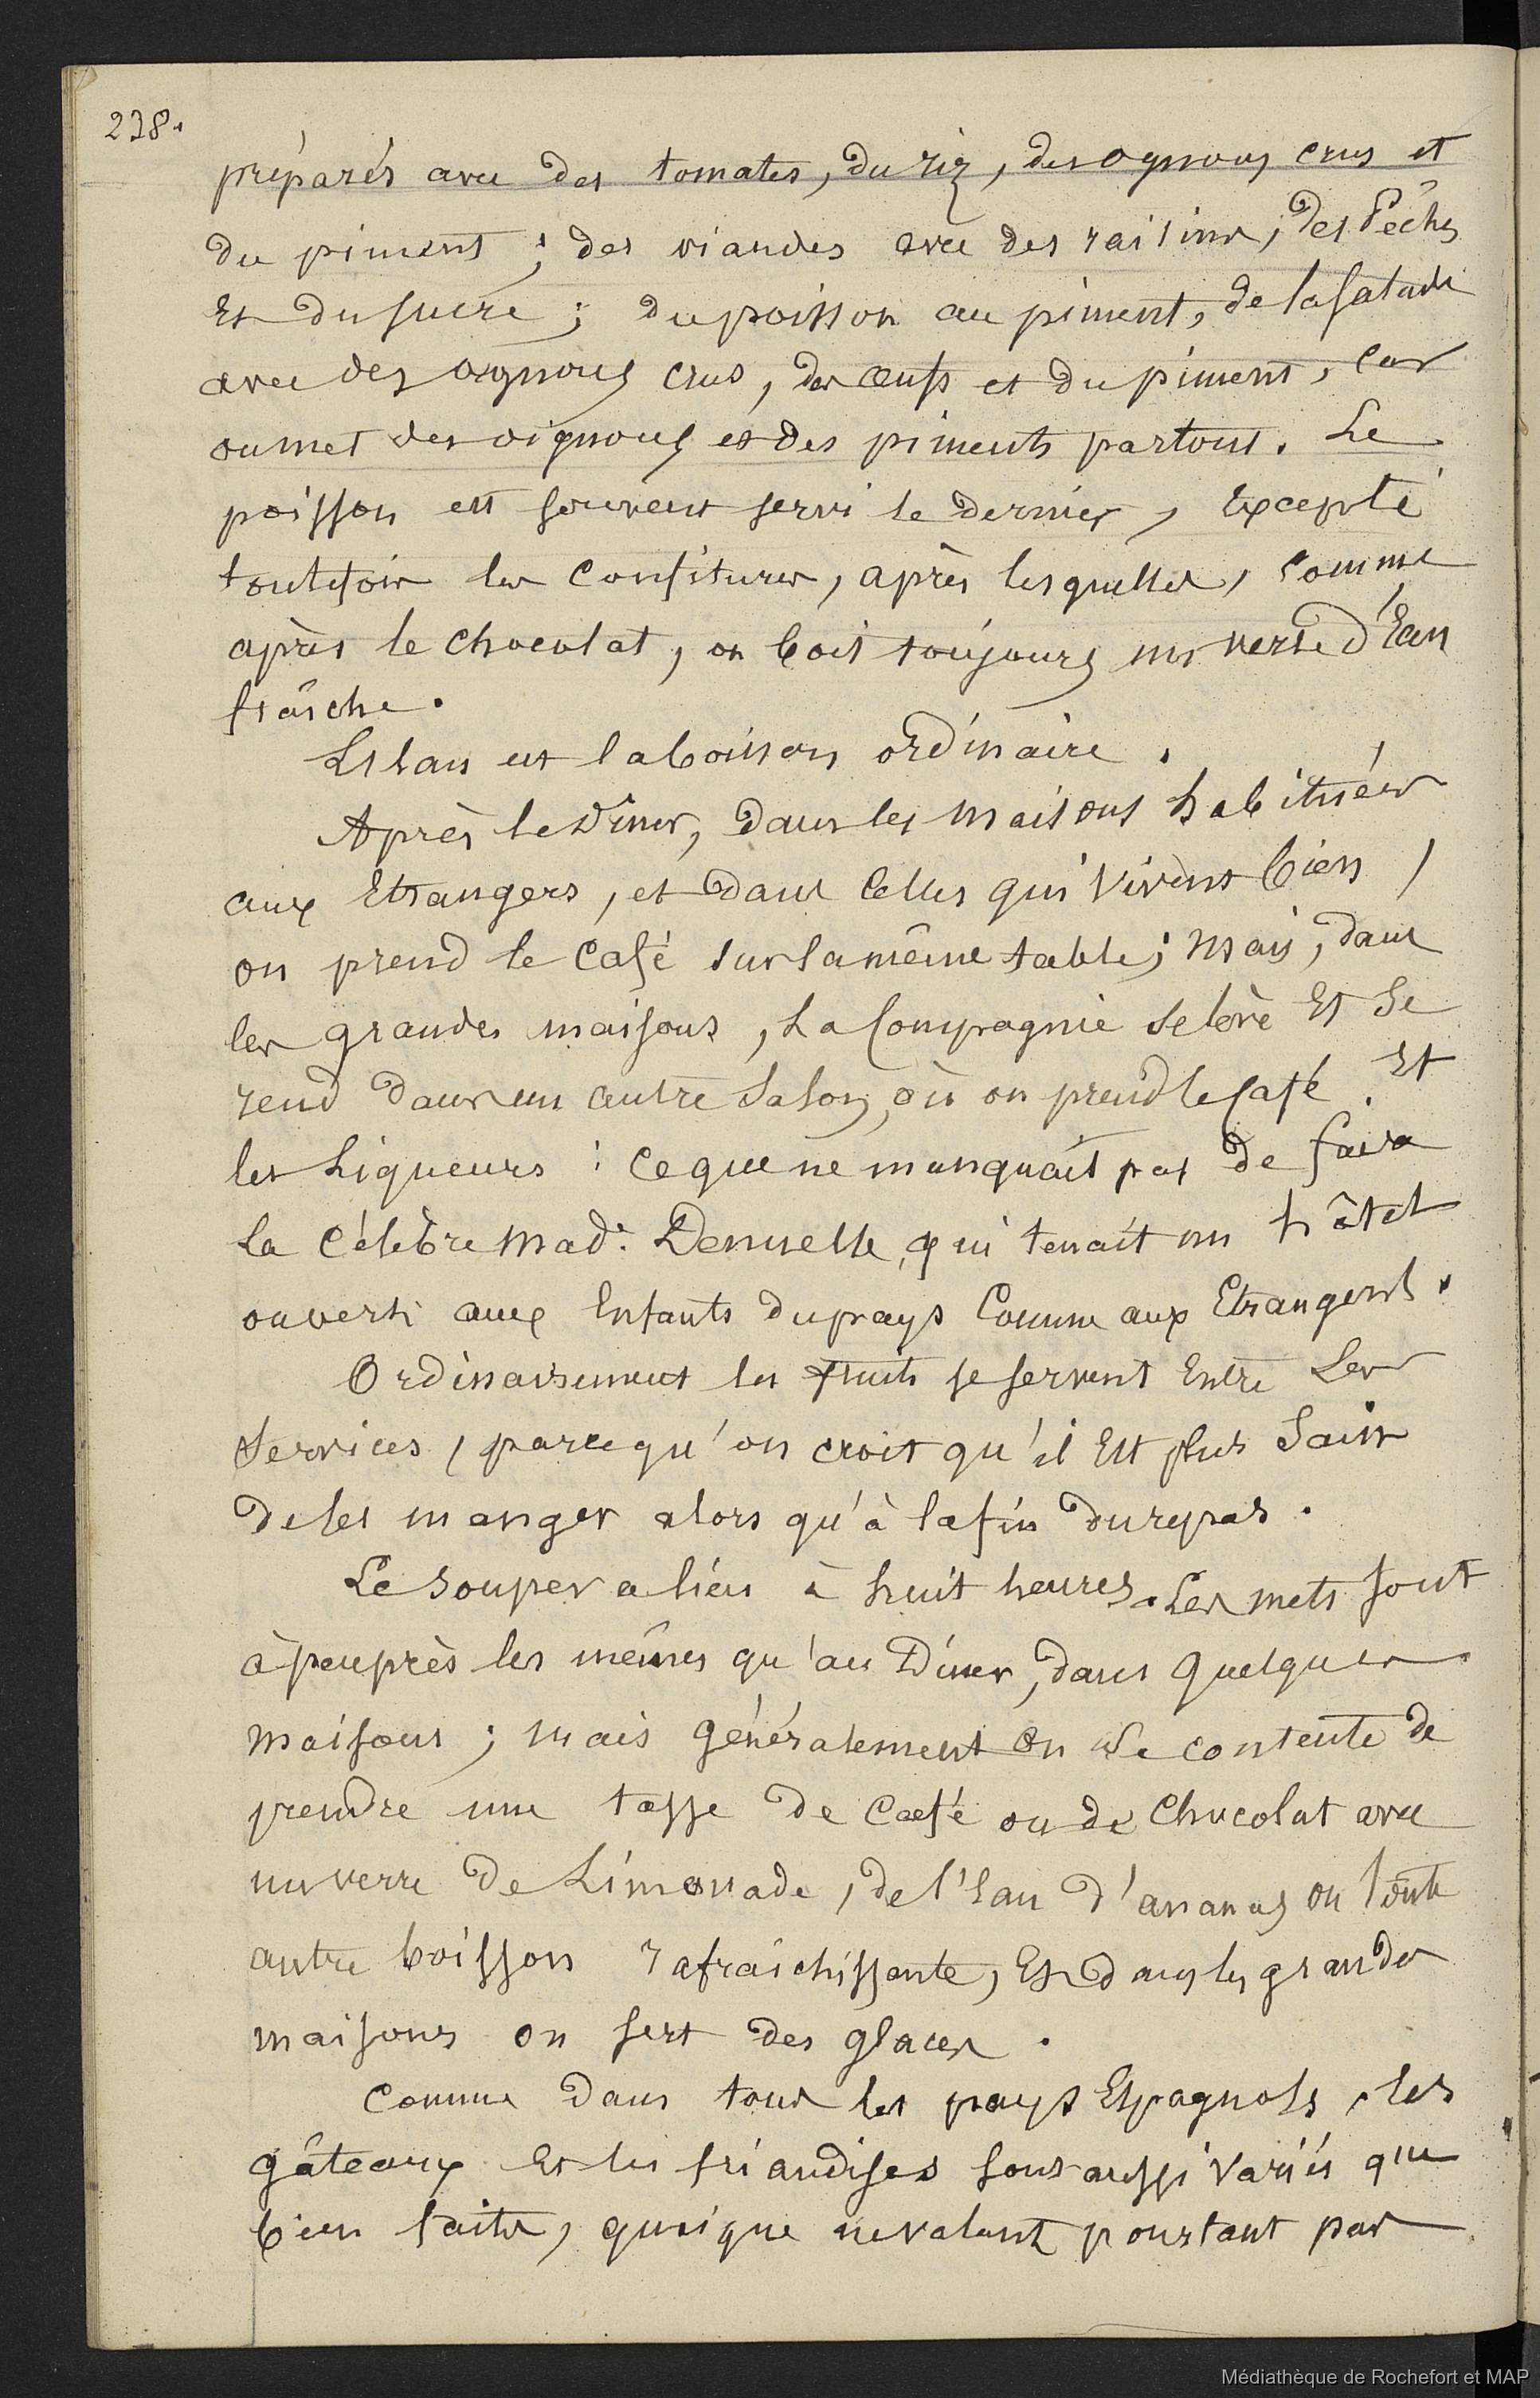 238.
préparés avec des tomates, du riz, des ognons crus et
du piment ; des viandes avec des raisins, des Pêches
Et du sucre ; du poisson au piment, de la salade
avec des ognons crus, des œufs et du piment, car
on met des oignons et des piments partout. Le
poisson est souvent servi le dernier, Excepté
toutefois les Confitures, après lesquelles, comme
après le chocolat, on boit toujours un verre d'Eau
fraîche.
L'Eau est la boisson ordinaire.
Après le Dîner, dans les maisons habituées
aux Etrangers, et dans Celles qui vivent bien,
on prend le Café sur la même table ; mais, dans
les grandes maisons, La Compagnie se lève Et Se
rend dans un autre Salon, où on prend le Café Et
les Liqueurs : Ce que ne manquait pas de faire
La Célèbre Mad.e Denuelle, qui tenait un hôtel
ouvert aux Enfants du pays Comme aux Etrangers.
Ordinairement les fruits se servent Entre Les
Services, parce qu'on croit qu'il Est plus Sain
de les manger alors qu'à la fin du repas.
Le souper a lieu à huit heures. Les mets sont
à peu près les mêmes qu'au Dîner, dans quelques
maisons ; mais généralement on se contente de
prendre une tasse de Café ou de Chocolat avec
un verre de Limonade, de l'Eau d'ananas ou toute
autre boisson rafraîchissante, Et dans les grandes
maisons on sert des glaces.
Comme dans tous les pays Espagnols, les
gâteaux Et les friandises sont aussi variés que
bien faits, quoique ne valant pourtant pas
Médiathèque de Rochefort et MAP